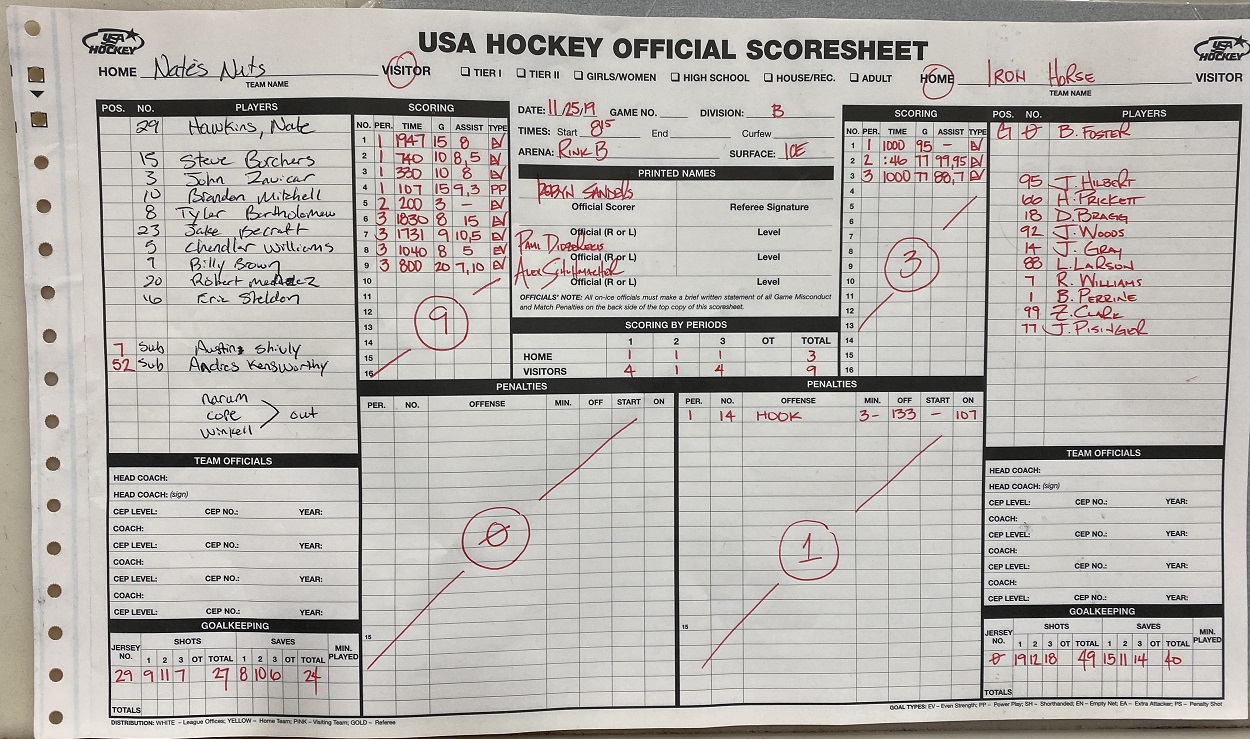 USA HOCKEY
USA HOCKEY OFFICIAL SCORESHEET
USA HOCKEY
HOME Nate's Nuts VISITOR
TEAM NAME
☐ TIER I ☐ TIER II ☐ GIRLS/WOMEN ☐ HIGH SCHOOL ☐ HOUSE/REC. ☐ ADULT
HOME IRON HORSE VISITOR
TEAM NAME
POS. NO. PLAYERS
29 Hawkins, Nate
15 Steve Borchers
3 John Zavicar
10 Brandon Mitchell
8 Tyler Bartholomew
23 Jake Becraft
5 Chandler Williams
9 Billy Brown
20 Robert
16 Eric Sheldon
7 Sub Austin Shivly
52 Sub Andres Kensworthy
narum
cope > out
winkell
SCORING
NO. PER. TIME G ASSIST TYPE
1 1 1947 15 8 EV
2 1 740 10 8,5 EV
3 1 330 10 8 EV
4 1 107 15 9,3 PP
5 2 200 3 – EV
6 3 1830 8 15 EV
7 3 1731 9 10,5 EV
8 3 1040 8 5 EV
9 3 800 20 7,10 EV
10
11
12
13
14
15
16
9
DATE: 11/25/19 GAME NO. DIVISION: B
TIMES: Start 815 End Curfew
ARENA: RINK B SURFACE: ICE
PRINTED NAMES
ROBYN SANDERS
Official Scorer Referee Signature
Official (R or L) Level
PAUL
Official (R or L) Level
ALEX SCHUHMACHER
Official (R or L) Level
OFFICIALS' NOTE: All on-ice officials must make a brief written statement of all Game Misconduct
and Match Penalties on the back side of the top copy of this scoresheet.
SCORING BY PERIODS
1 2 3 OT TOTAL
HOME 1 1 1 3
VISITORS 4 1 4 9
SCORING
NO. PER. TIME G ASSIST TYPE
1 1 1000 95 – EV
2 2 :46 77 99,95 EV
3 3 1000 77 88,7 EV
4
5
6
7
8
9
10
11
12
13
14
15
16
3
POS. NO. PLAYERS
G 0 B. FOSTER
95 J. HILBERT
66 H. PRICKETT
18 D. BRAGG
92 J. WOODS
14 J. GRAY
88 L. LARSON
7 R. WILLIAMS
1 B. PERRINE
99 Z. CLARK
77 J. PISINGER
PENALTIES
PER. NO. OFFENSE MIN. OFF START ON
15
0
PENALTIES
PER. NO. OFFENSE MIN. OFF START ON
1 14 HOOK 3- 133 – 107
15
1
TEAM OFFICIALS
HEAD COACH:
HEAD COACH: (sign)
CEP LEVEL: CEP NO.: YEAR:
COACH:
CEP LEVEL: CEP NO.: YEAR:
COACH:
CEP LEVEL: CEP NO.: YEAR:
COACH:
CEP LEVEL: CEP NO.: YEAR:
GOALKEEPING
JERSEY NO. SHOTS SAVES MIN. PLAYED
1 2 3 OT TOTAL 1 2 3 OT TOTAL
29 9 11 7 27 8 10 6 24
TOTALS
TEAM OFFICIALS
HEAD COACH:
HEAD COACH: (sign)
CEP LEVEL: CEP NO.: YEAR:
COACH:
CEP LEVEL: CEP NO.: YEAR:
COACH:
CEP LEVEL: CEP NO.: YEAR:
COACH:
CEP LEVEL: CEP NO.: YEAR:
GOALKEEPING
JERSEY NO. SHOTS SAVES MIN. PLAYED
1 2 3 OT TOTAL 1 2 3 OT TOTAL
0 19 12 18 49 15 11 14 40
TOTALS
DISTRIBUTION: WHITE – League Offices; YELLOW – Home Team; PINK – Visiting Team; GOLD – Referee
GOAL TYPES: EV – Even Strength; PP – Power Play; SH – Shorthanded; EN – Empty Net; EA – Extra Attacker; PS – Penalty Shot